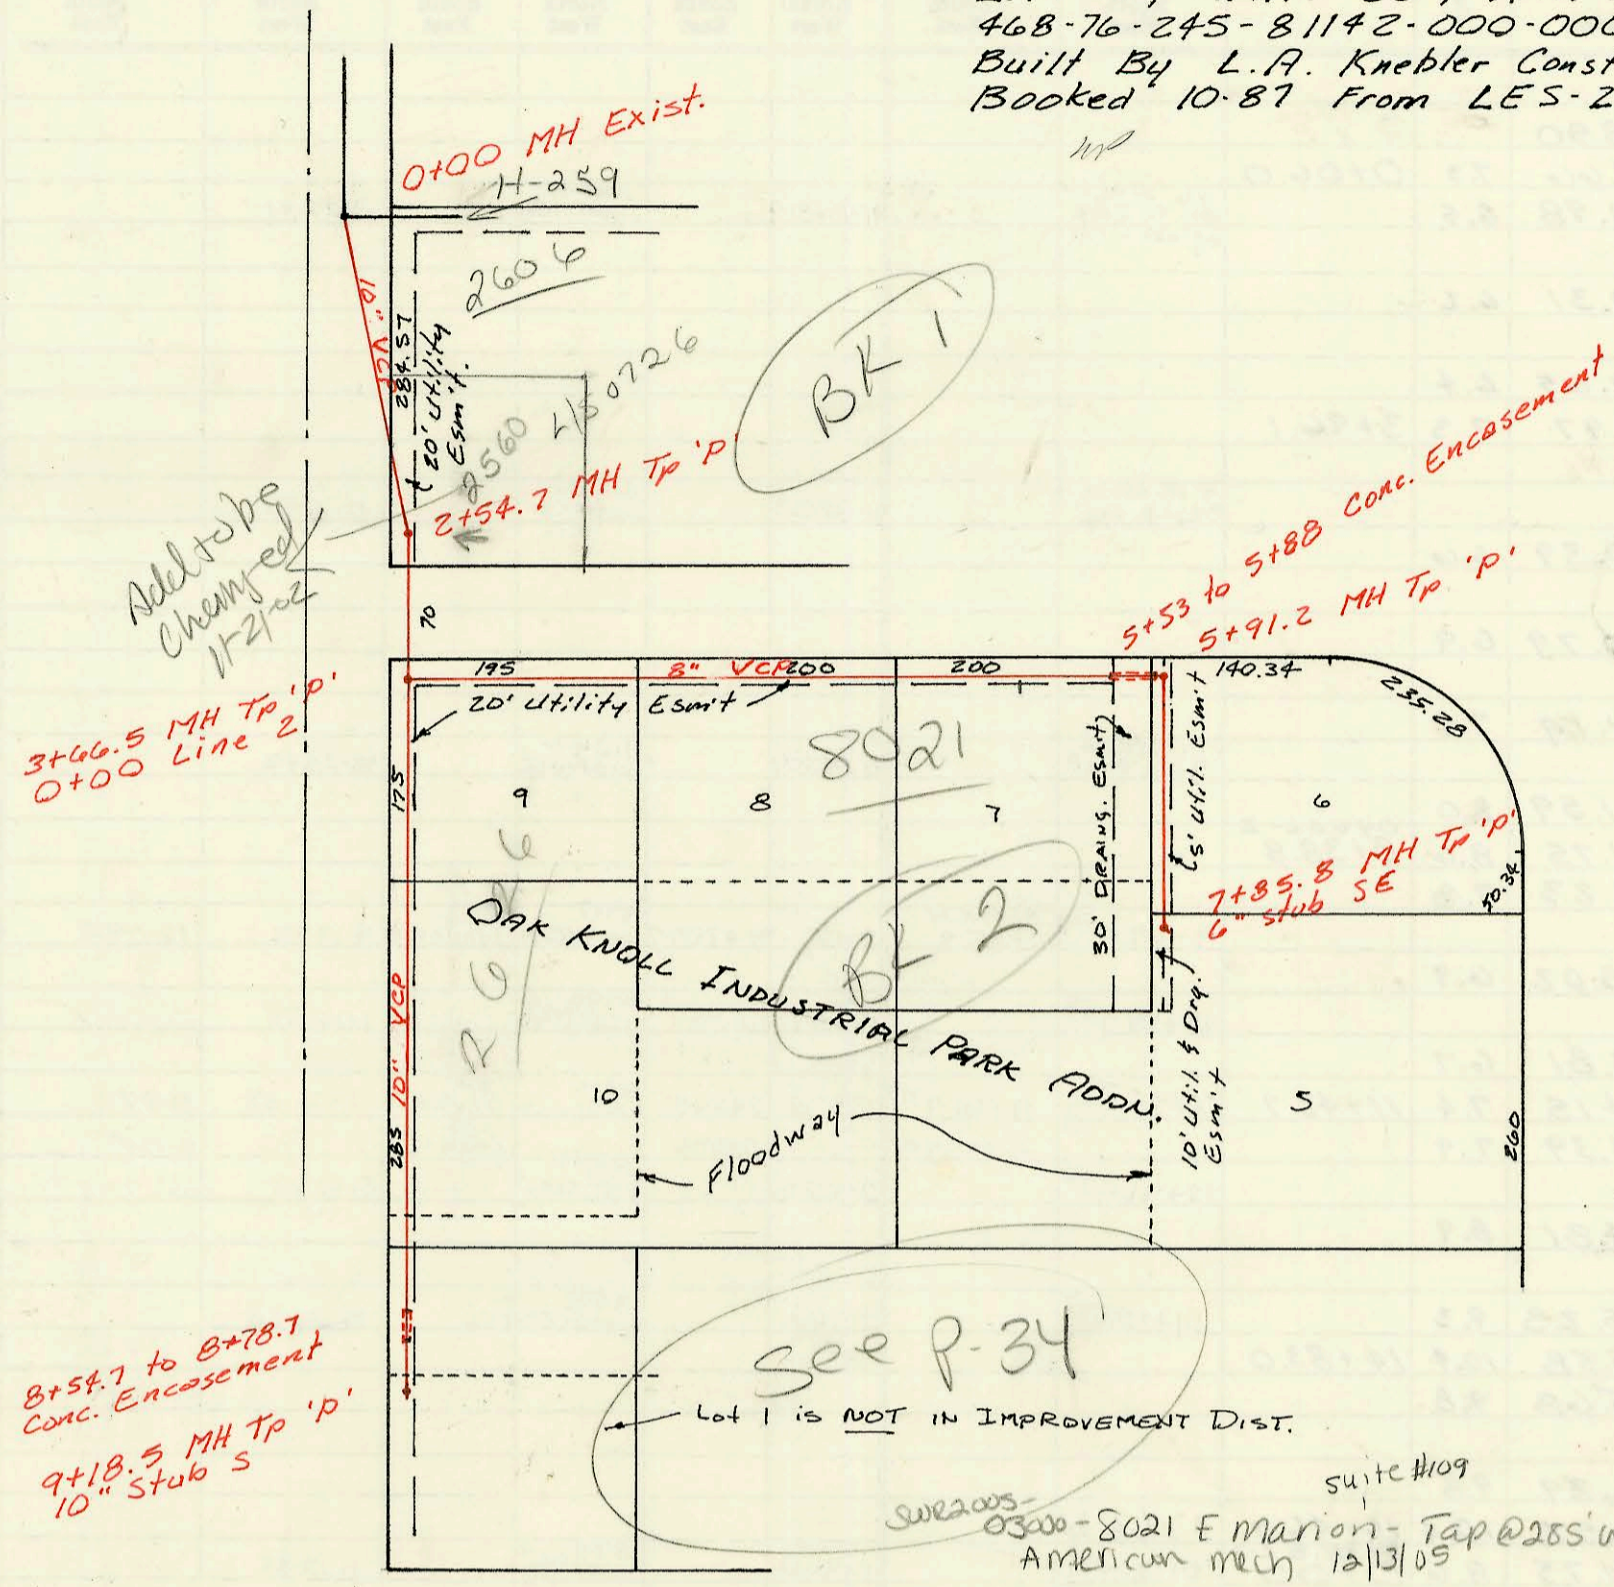 468-76-245-81142-000-000
Built By L.A. Knebler Const
Booked 10-87 From LES-2
0+00 MH Exist.
H-259
2606
10" VCP
284.57
20' Utility
Esm't.
2560
L/S 0726
BK 1
2+54.7 MH Tp 'P'
Add to be
Chang-ed
11-21-02
70
5+53 to 5+88 Conc. Encasement
5+91.2 MH Tp 'P'
195
8" VCP
200
200
140.34
235.28
20' Utility Esm't
3+66.5 MH Tp 'P'
0+00 Line 2
175
9
8
8021
7
30' DRAING. Esm't
15' Util. Esm't
6
7+85.8 MH Tp 'P'
6" Stub SE
50.34
OAK KNOLL INDUSTRIAL PARK ADDN.
BK 2
10" VCP
285
10
Floodway
10' Util. & Drg.
Esm't
5
260
8+54.7 to 8+78.7
Conc. Encasement
9+18.5 MH Tp 'P'
10" Stub S
See P-34
Lot 1 is NOT IN IMPROVEMENT DIST.
suite #109
SWR2005-
03000-8021 E Marion - Tap @285'
American mech 12/13/05